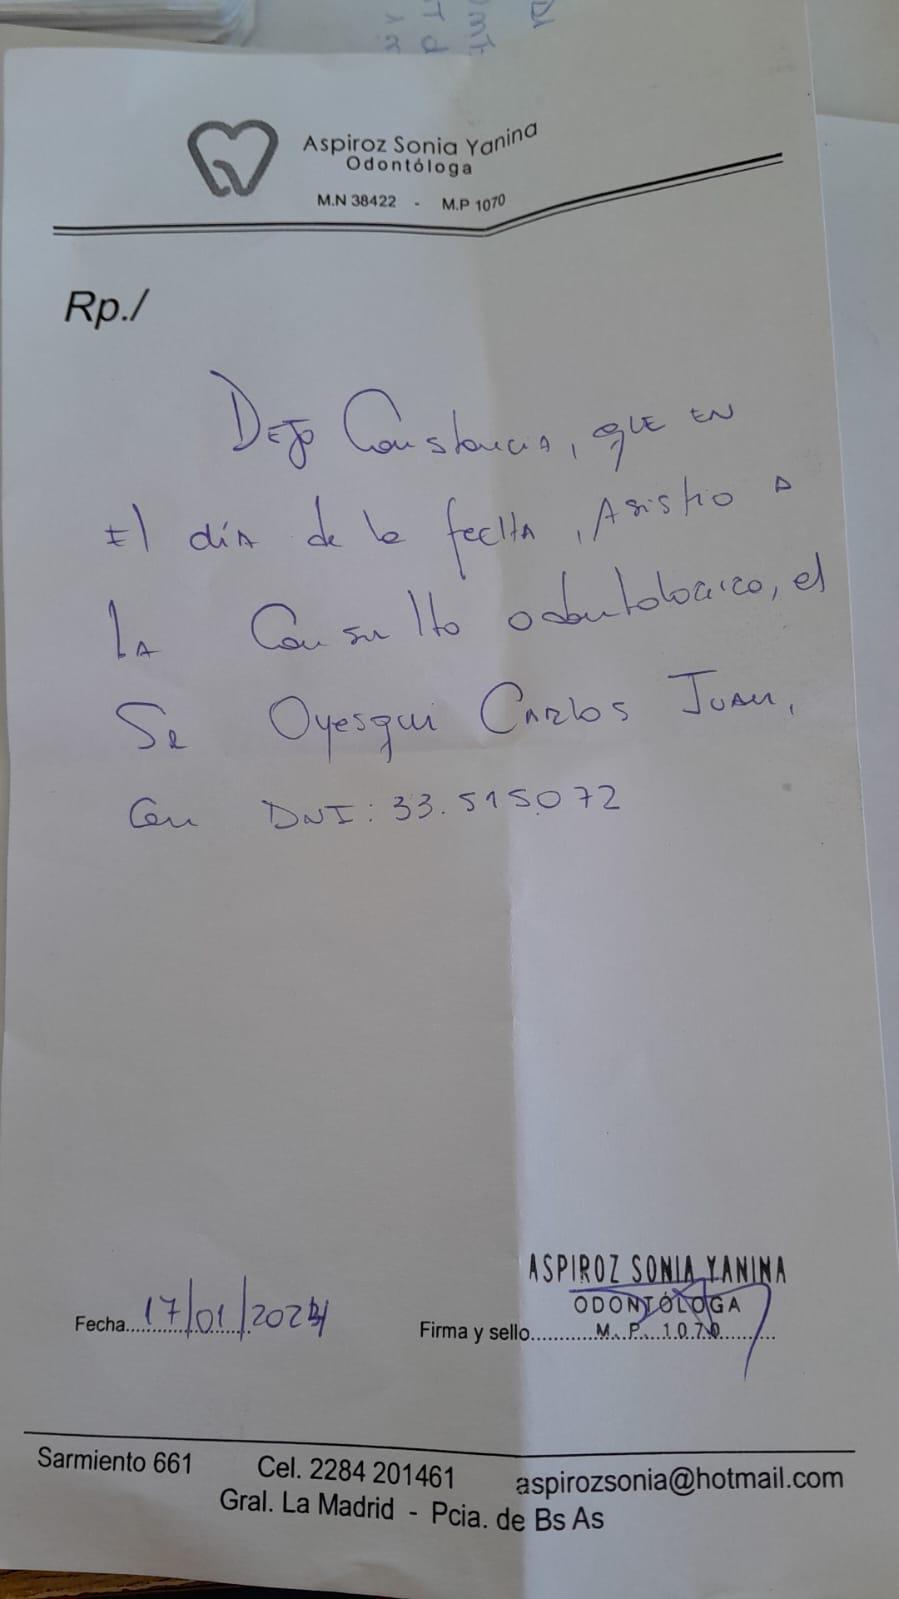 Aspiroz Sonia Yanina
Odontóloga
M.N 38422 - M.P 1070
Rp./
Dejo Constancia, que en
El día de la fecha, Asistio a
La Consulta odontologica, el
Sr Oyesqui Carlos Juan,
Con DNI: 33.515.072
ASPIROZ SONIA YANINA
ODONTÓLOGA
M.P. 1070
Fecha 17/01/2024
Firma y sello
Sarmiento 661 Cel. 2284 201461 aspirozsonia@hotmail.com
Gral. La Madrid - Pcia. de Bs As